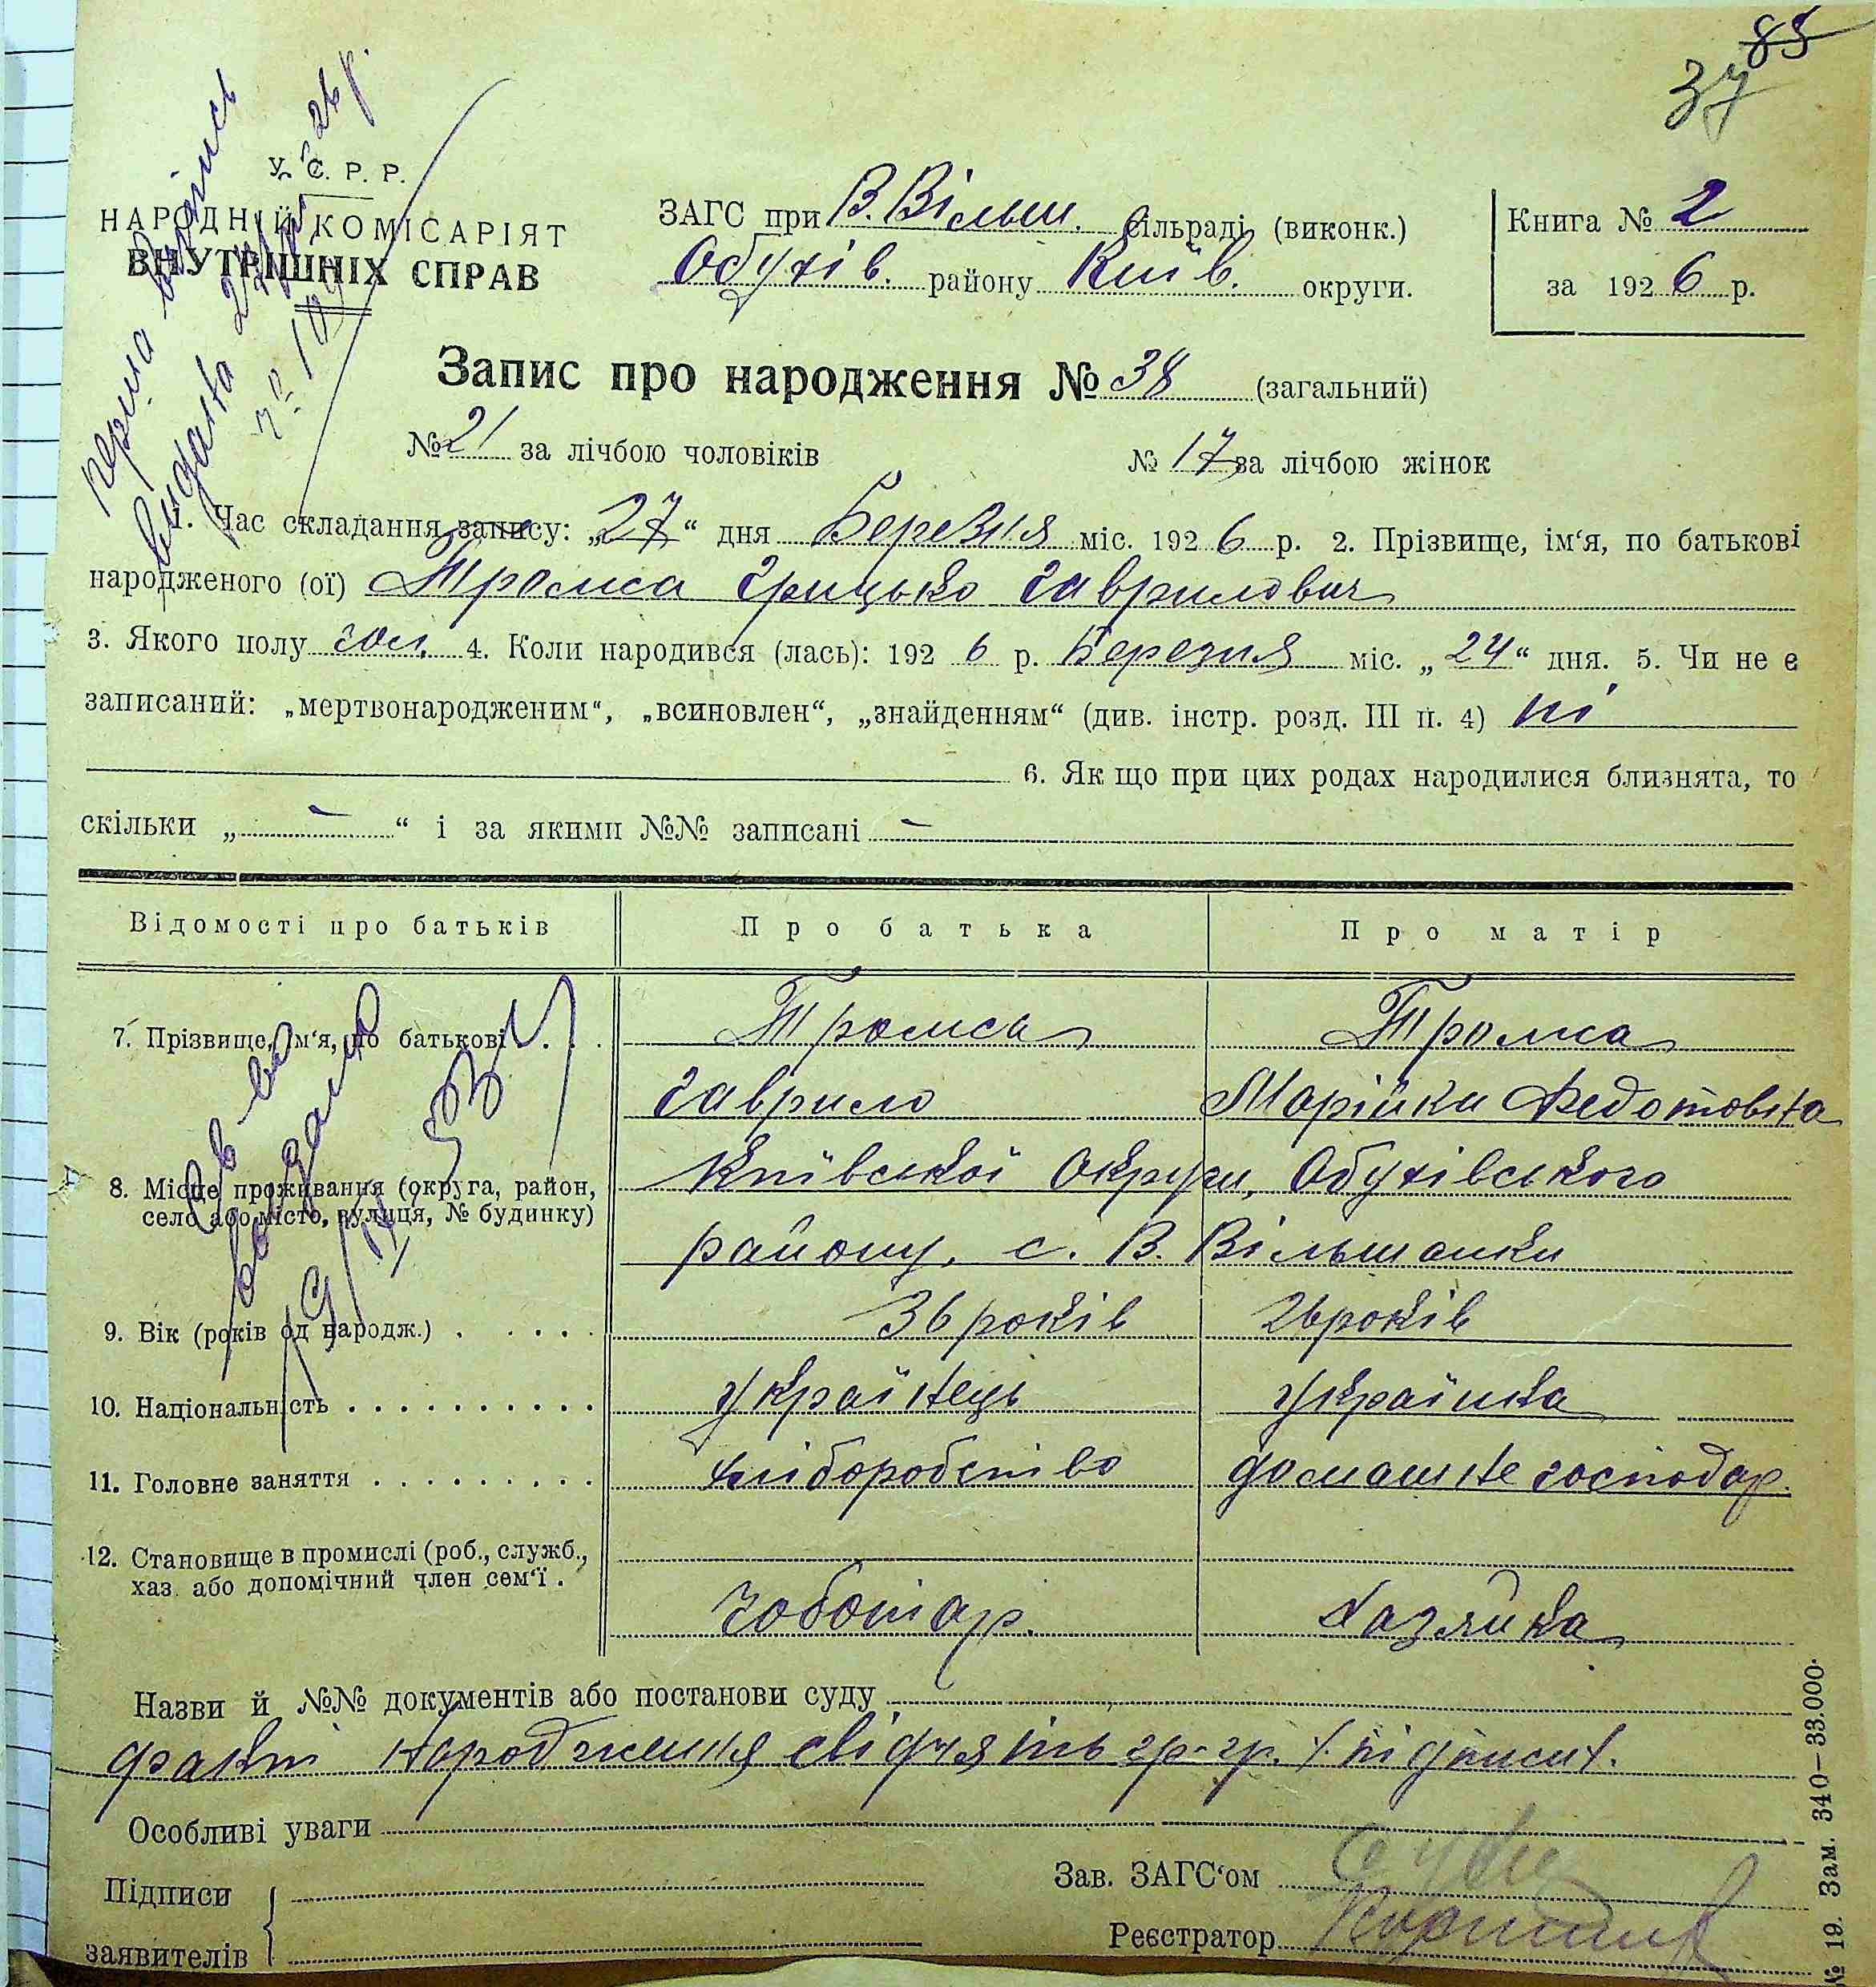 85
37
перша випись
видана 27/III-26 р.
У. С. Р. Р.
НАРОДНІЙ КОМІСАРІЯТ
ВНУТРІШНІХ СПРАВ
ЗАГС при В. Вільш. сільраді (виконк.)
Обухів. району Київ. округи.
Книга № 2
за 1926 р.
Запис про народження № 38 (загальний)
№ 21 за лічбою чоловіків № 17 за лічбою жінок
1. Час складання запису: „27“ дня Березня міс. 1926 р. 2. Прізвище, ім‘я, по батькові
народженого (ої) Грицько Гаврилович
3. Якого полу чол. 4. Коли народився (лась): 1926 р. Березня міс. „24“ дня. 5. Чи не є
записаний: „мертвонародженим“, „всиновлен“, „знайденням“ (див. інстр. розд. III п. 4) ні
6. Як що при цих родах народилися близнята, то
скільки „ – “ і за якими №№ записані –
Відомості про батьків Про батька Про матір
7. Прізвище, ім‘я, по батькові
Гаврило Марійка Федотовна
8. Місце проживання (округа, район,
село або місто, вулиця, № будинку)
Київської Округи, Обухівського
району, с. В. Вільшанки
9. Вік (років од народж.) . . . . . 36 років 26 років
10. Національність . . . . . . . . . . українець українка
11. Головне заняття . . . . . . . . . хліборобство домашнє господар.
12. Становище в промислі (роб., служб.,
хаз. або допомічний член сем‘ї .
чоботар. хазяйка
Назви й №№ документів або постанови суду
факт народження свідчять гр-гр. /підпис/.
Особливі уваги
Підписи
заявителів
Зав. ЗАГС‘ом
Реєстратор
№ 19. Зам. 340—33.000.